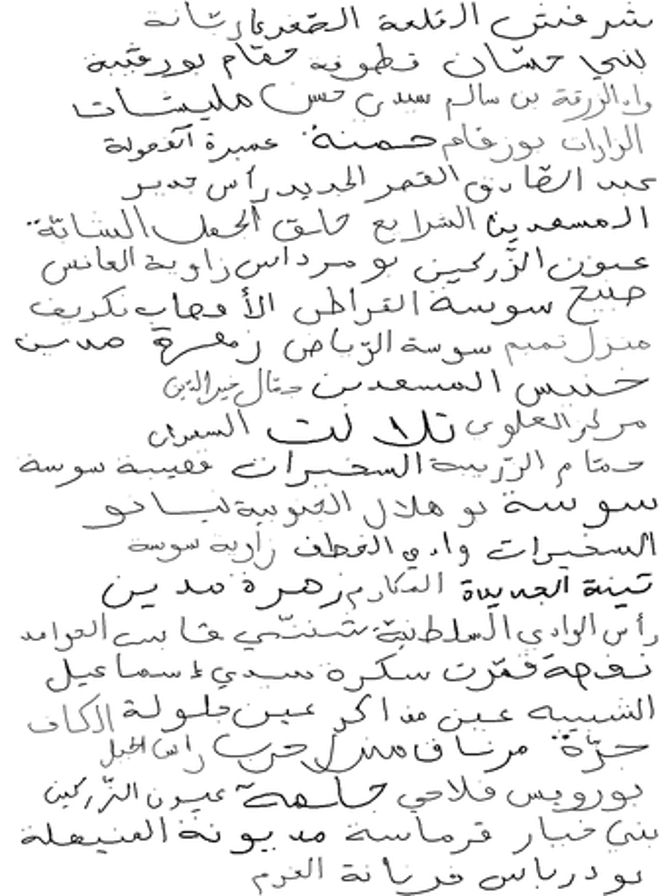 شرفش القلعة الصغرى رسّانة
بني حسّان قطوفة حمّام بورقيبة
واد الزرقة بن سالم سيدي حسن مليشات
الزارات بوزقام حمنة عميرة
عبد الصّادق القصر الجديد رأس جدير
المسعدين الشرايع حلق الجمل الشابّة
عيون الزّركين بو مرداس زاوية العانس
صبيح سوسة القراطن الأوصاب تكريف
منزل تميم سوسة الرّياض زهرة مدين
خنيس المسعدين حتّال خير الدّين
مركز العلوي تلالت السميران
حمّام الزّريبة السخيرات قصيبة سوسة
سوسة بو هلال الجنوبية نيانو
السخيرات وادي القطف زاوية سوسة
تينة الجديدة المكارم زهرة مدين
رأس الوادي السلطنيّة شنّي قابس العوامد
نفيضة قمّرت سكرة سيدي إسماعيل
الشبيبه عين مذاكر عين جلولة الكاف
جرّة مرناق منزل حرب رأس الجبل
بورويس فلاحي حامة عيون الزّركين
بني خيار قرماسة مديونة المنيهلة
بودرباس فريانة القرم